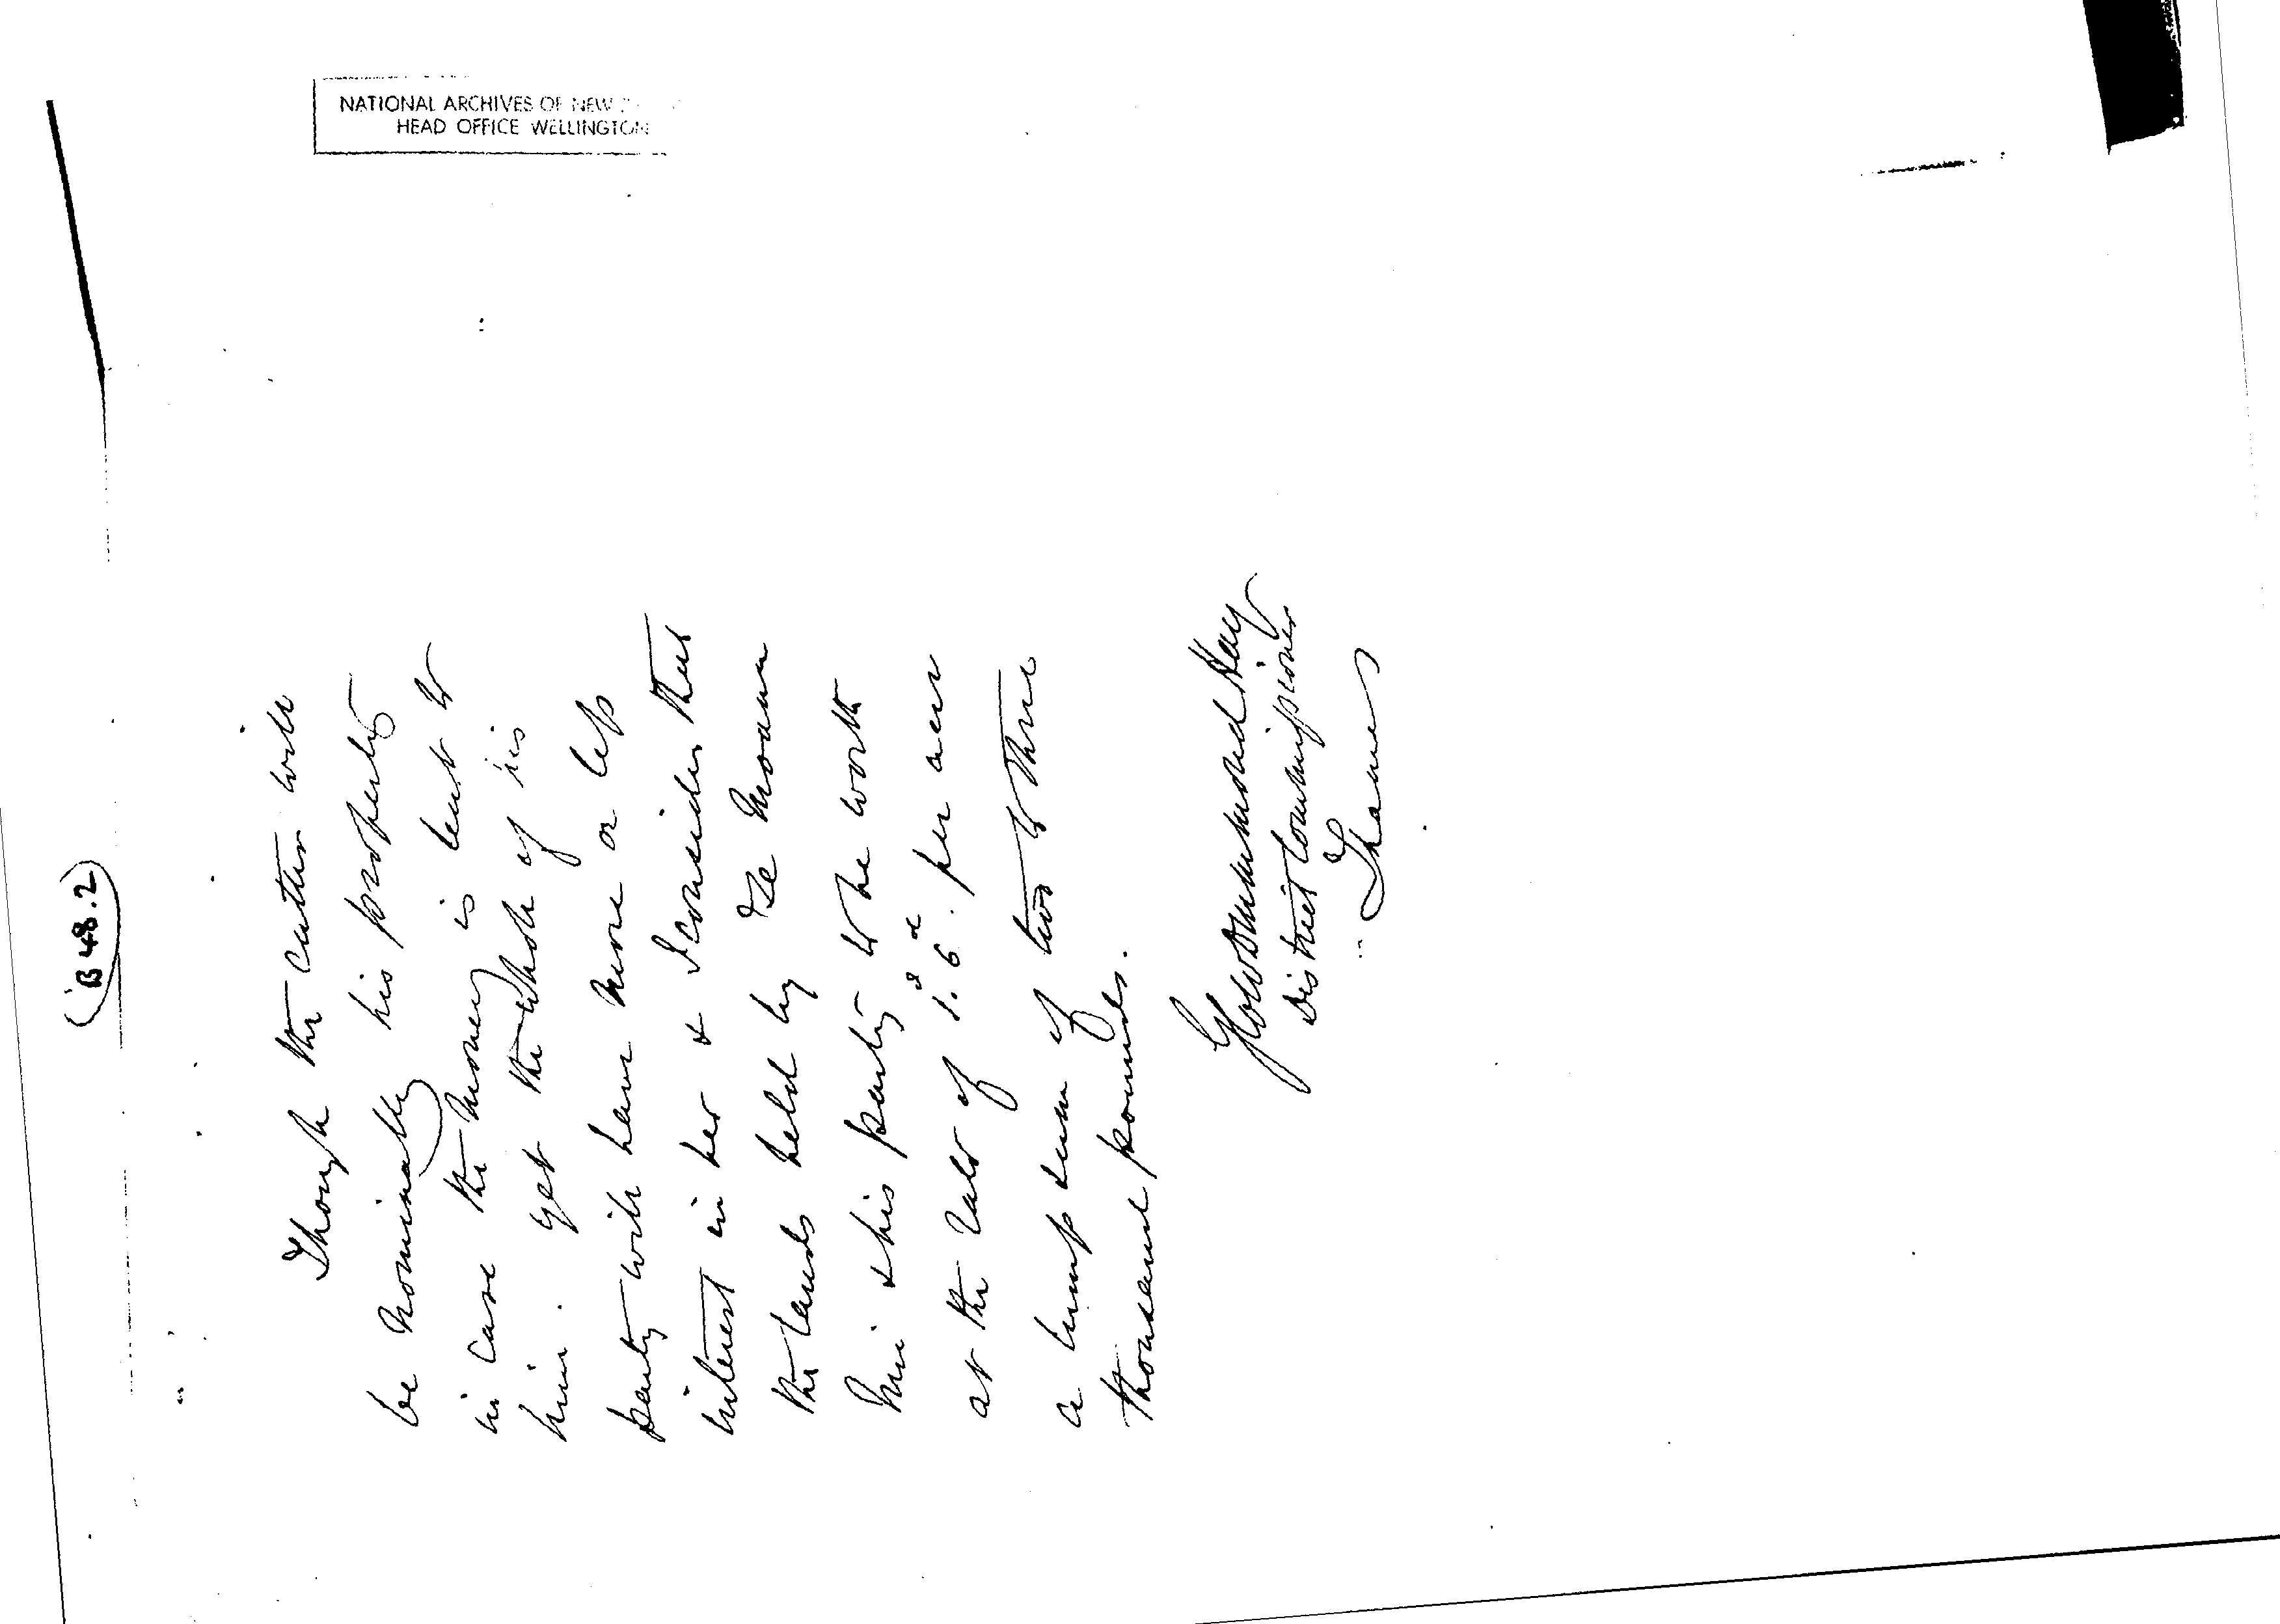 NATIONAL ARCHIVES OF NEW
HEAD OFFICE WELLINGTON
(B 48.2)
Though the cutter will
be nominally his property
in case the money is lent to
him. yet the whole of his
party will have more or less
interest in her & I consider that
the lands held by Te Moana
nui & his party to be worth
at the rate of 1.s 6.d per acre
a lump sum of two to three
thousand pounds.
Drummond Hay
District Commissioner
Thames